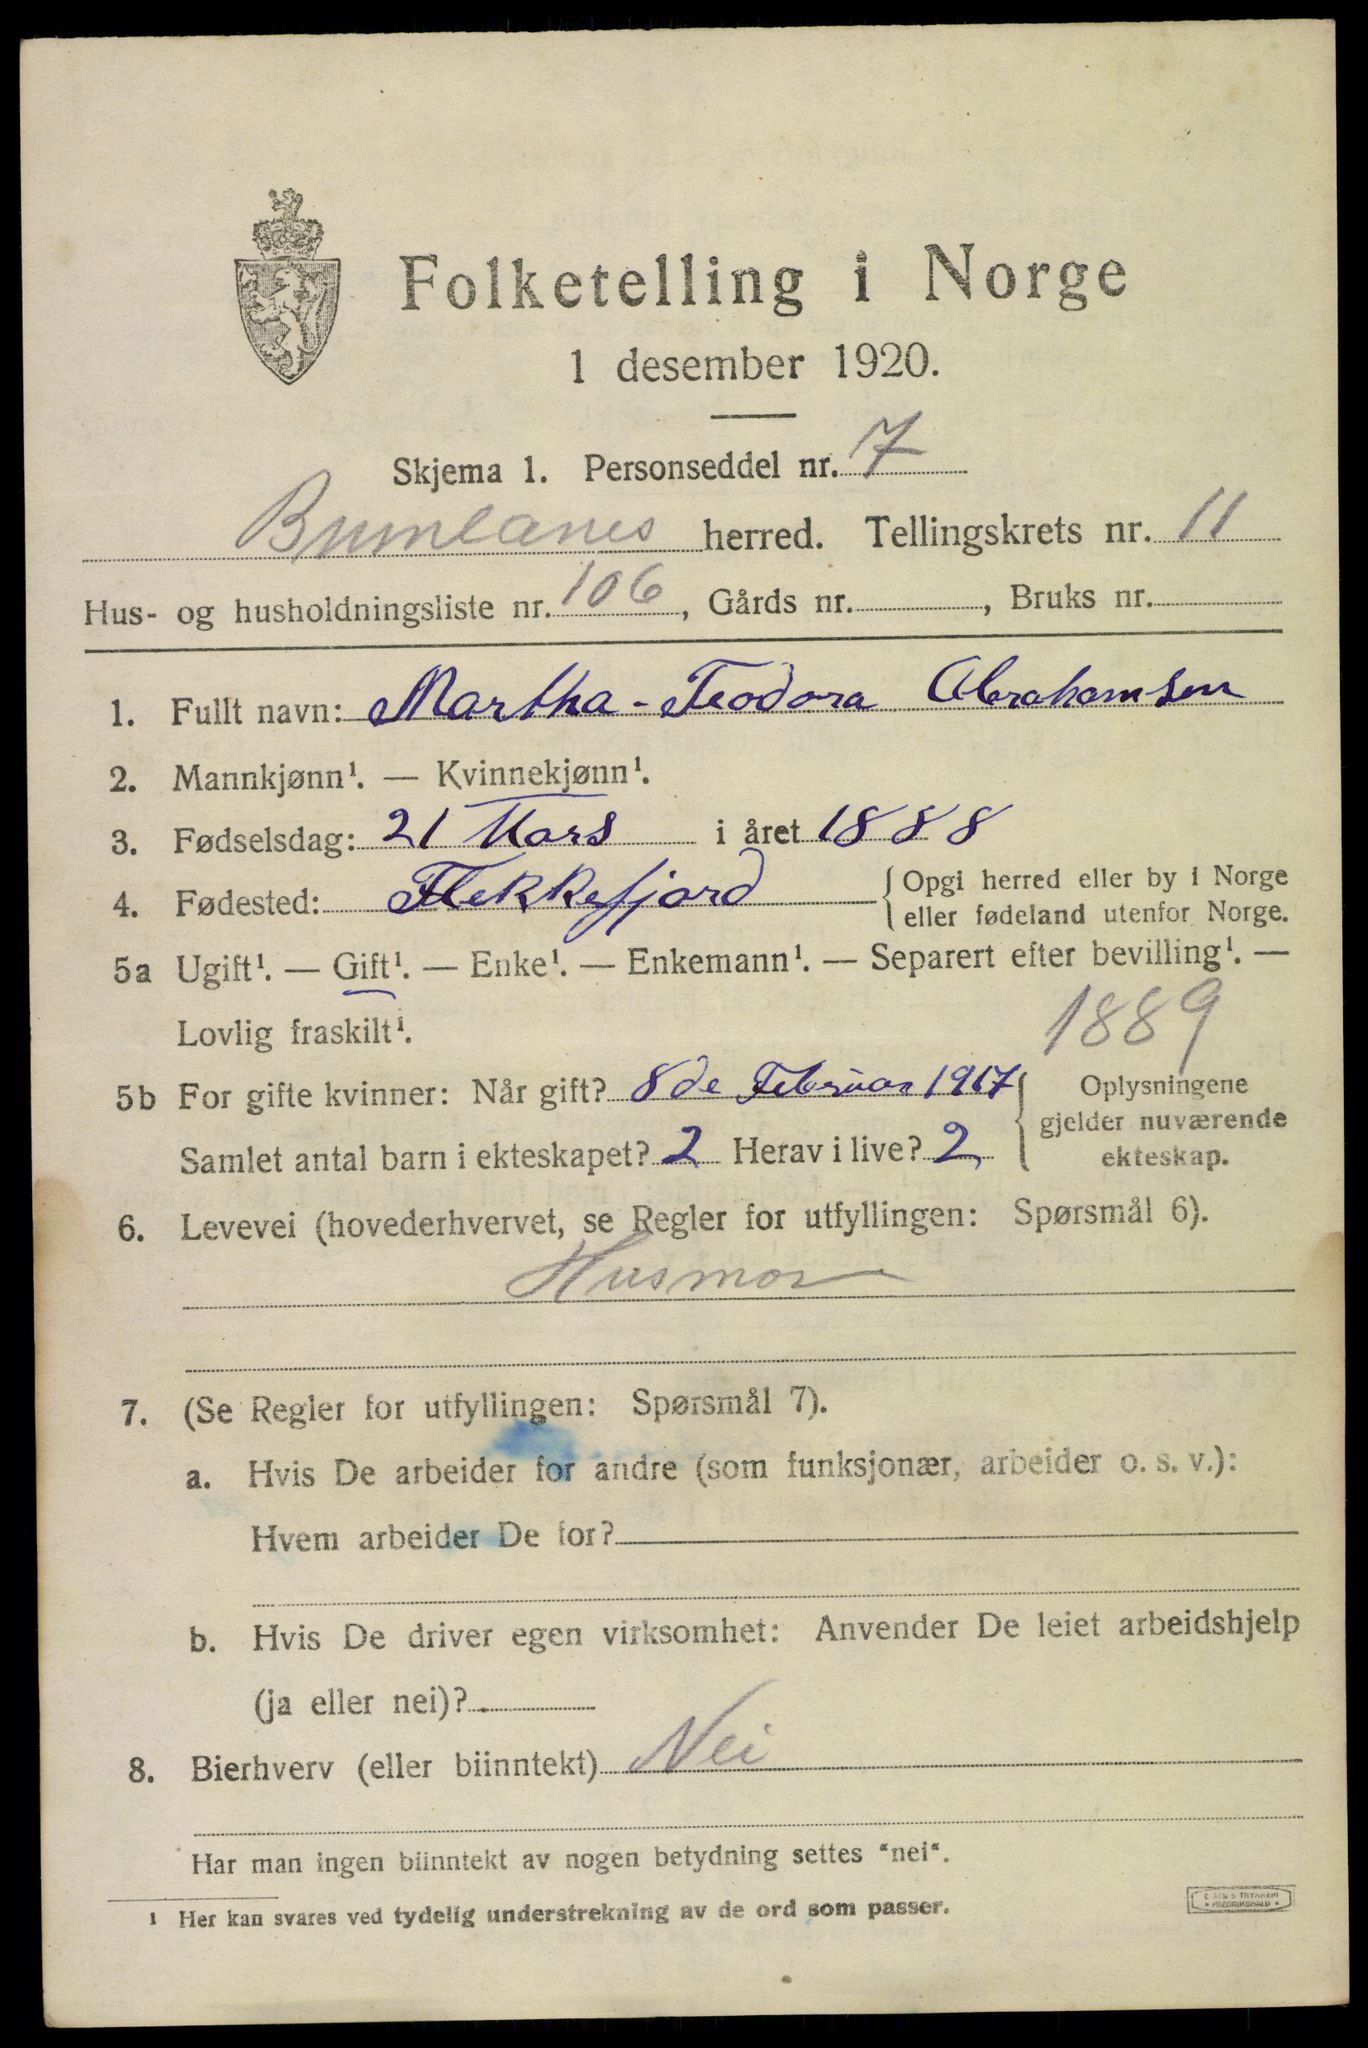 Folketelling i Norge
1 desember 1920.
Skjema 1. Personseddel nr. 7
Brunlanes herred. Tellingskrets nr. 11
Hus- og husholdningsliste nr. 106, Gårds nr. , Bruks nr.
1. Fullt navn: Martha-Teodora Abrahamsen
2. Mannkjønn¹. — Kvinnekjønn¹.
3. Fødselsdag: 21 Mars i året 1888
4. Fødested: Flekkefjord { Opgi herred eller by i Norge
eller fødeland utenfor Norge.
5a Ugift¹. — Gift¹. — Enke¹. — Enkemann¹. — Separert efter bevilling¹. —
Lovlig fraskilt¹.
1889
5b For gifte kvinner: Når gift? 8de Februar 1917 { Oplysningene
gjelder nuværende
Samlet antal barn i ekteskapet? 2 Herav i live? 2 ekteskap.
6. Levevei (hovederhvervet, se Regler for utfyllingen: Spørsmål 6).
Husmor
7. (Se Regler for utfyllingen: Spørsmål 7).
a. Hvis De arbeider for andre (som funksjonær, arbeider o. s. v.):
Hvem arbeider De for?
b. Hvis De driver egen virksomhet: Anvender De leiet arbeidshjelp
(ja eller nei)?
8. Bierhverv (eller biinntekt) Nei
Har man ingen biinntekt av nogen betydning settes "nei".
¹ Her kan svares ved tydelig understrekning av de ord som passer.
TRYKKERI
FREDRIKSHALD